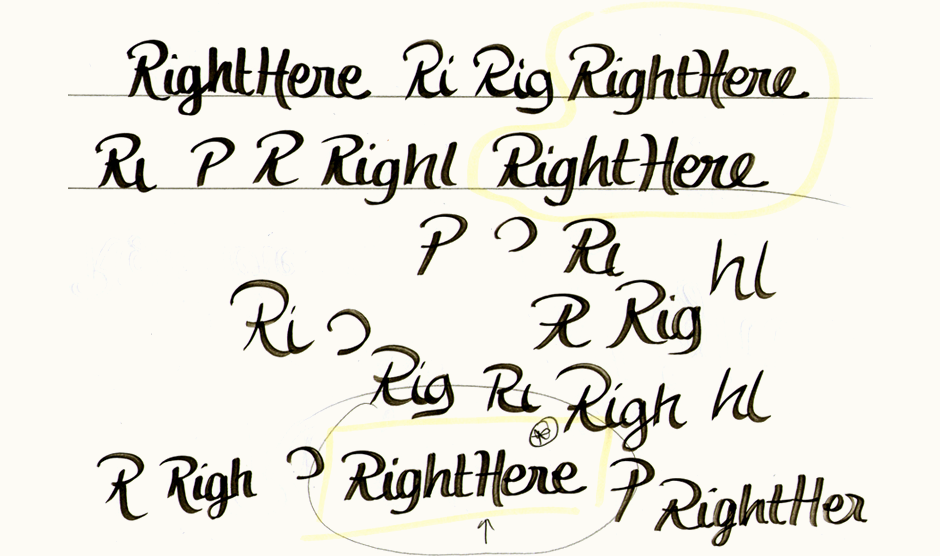 RightHere Ri Rig RightHere
Rı P R Righl RightHere
P Rı hl
Ri R Rig
Rig Rı Righ hl
R Righ RightHere P RightHer